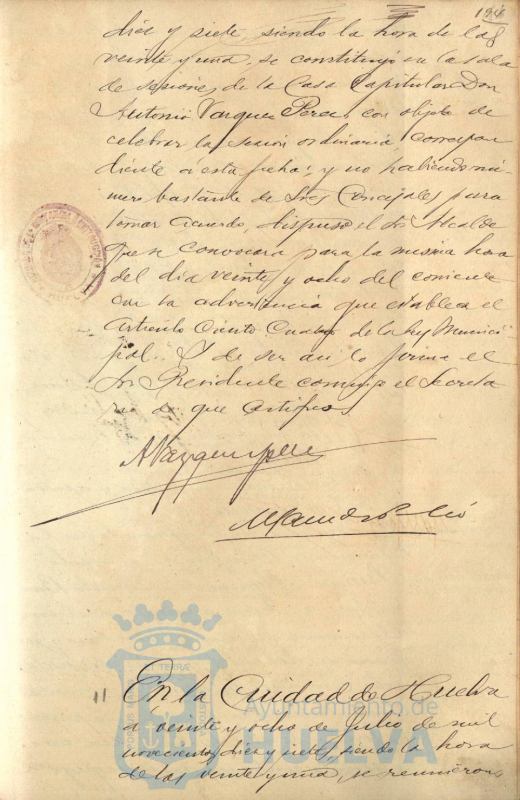 198
diez y siete, siendo la hora de las
veinte y una, se constituyó en la sala
de sesiones de la Casa Capitular Don
Antonio Vazquez Perez, con objeto de
celebrar la sesion ordinaria, correspon
diente á esta fecha; y no habiendo nú-
mero bastante de Sres Concejales para
tomar acuerdo, dispuso el Sr Alcalde
que se convocara para la misma hora
del dia veinte y ocho del corriente
con la advertencia que establece el
articulo Ciento Cuatro de la ley Munici-
pal. Y de ser asi lo firma el
Sr Presidente conmigo el Secreta
rio de que certifico
AVazquez
En la Ciudad de Huelva
á veinte y ocho de Julio de mil
novecientos diez y siete, siendo la hora
de las veinte y una, se reunieron
Ayuntamiento de
HUELVA